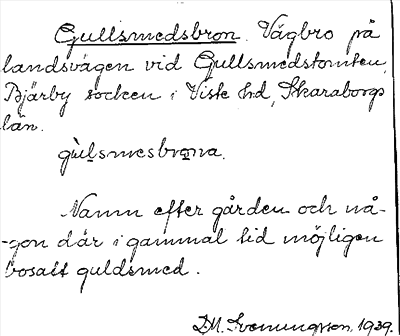 Gullsmedsbron. Vägbro på
landsvägen vid Gullsmedstomten,
Bjärby socken i Viste hd, Skaraborgs
län.
gùlsmesbrona.
Namn efter gården och nå-
-gon där i gammal tid möjligen
bosatt guldsmed.
D.M. Svenungsson, 1939.